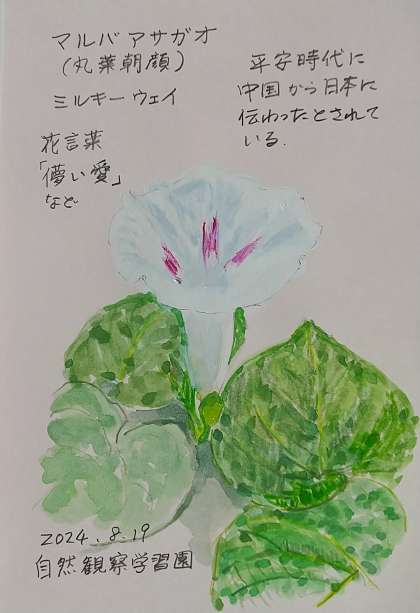 マルバアサガオ
(丸葉朝顔)
ミルキーウェイ
花言葉
「儚い愛」
など
平安時代に
中国から日本に
伝わったとされて
いる.
2024.8.19
自然観察学習園